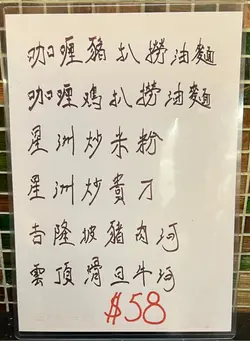 咖喱豬扒撈油麵
咖喱鸡扒撈油麵
星洲炒米粉
星洲炒貴刁
吉隆坡豬肉河
雲頂滑旦牛河
$58